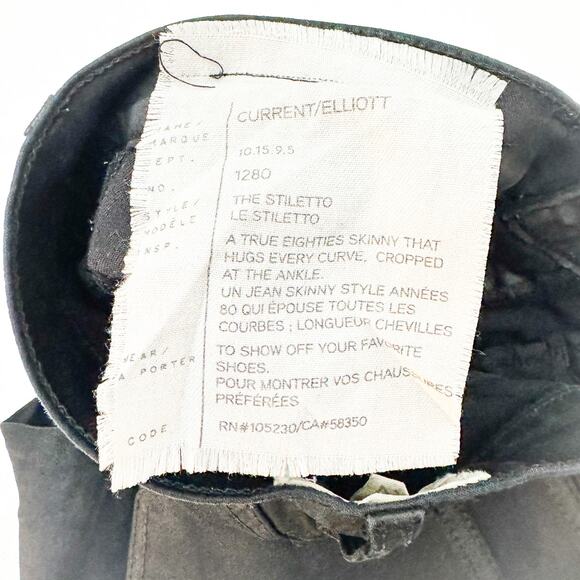 NAME/ CURRENT/ELLIOTT
MARQUE
EPT. 10.15.9.5
NO. 1280
STYLE/ THE STILETTO
MODÈLE LE STILETTO
NSP. A TRUE EIGHTIES SKINNY THAT
HUGS EVERY CURVE, CROPPED
AT THE ANKLE.
UN JEAN SKINNY STYLE ANNÉES
80 QUI ÉPOUSE TOUTES LES
COURBES ; LONGUEUR CHEVILLES
WEAR/ TO SHOW OFF YOUR FAVORITE
A PORTER SHOES.
POUR MONTRER VOS CHAUSSURES
PRÉFÉRÉES
CODE RN#105230/CA#58350